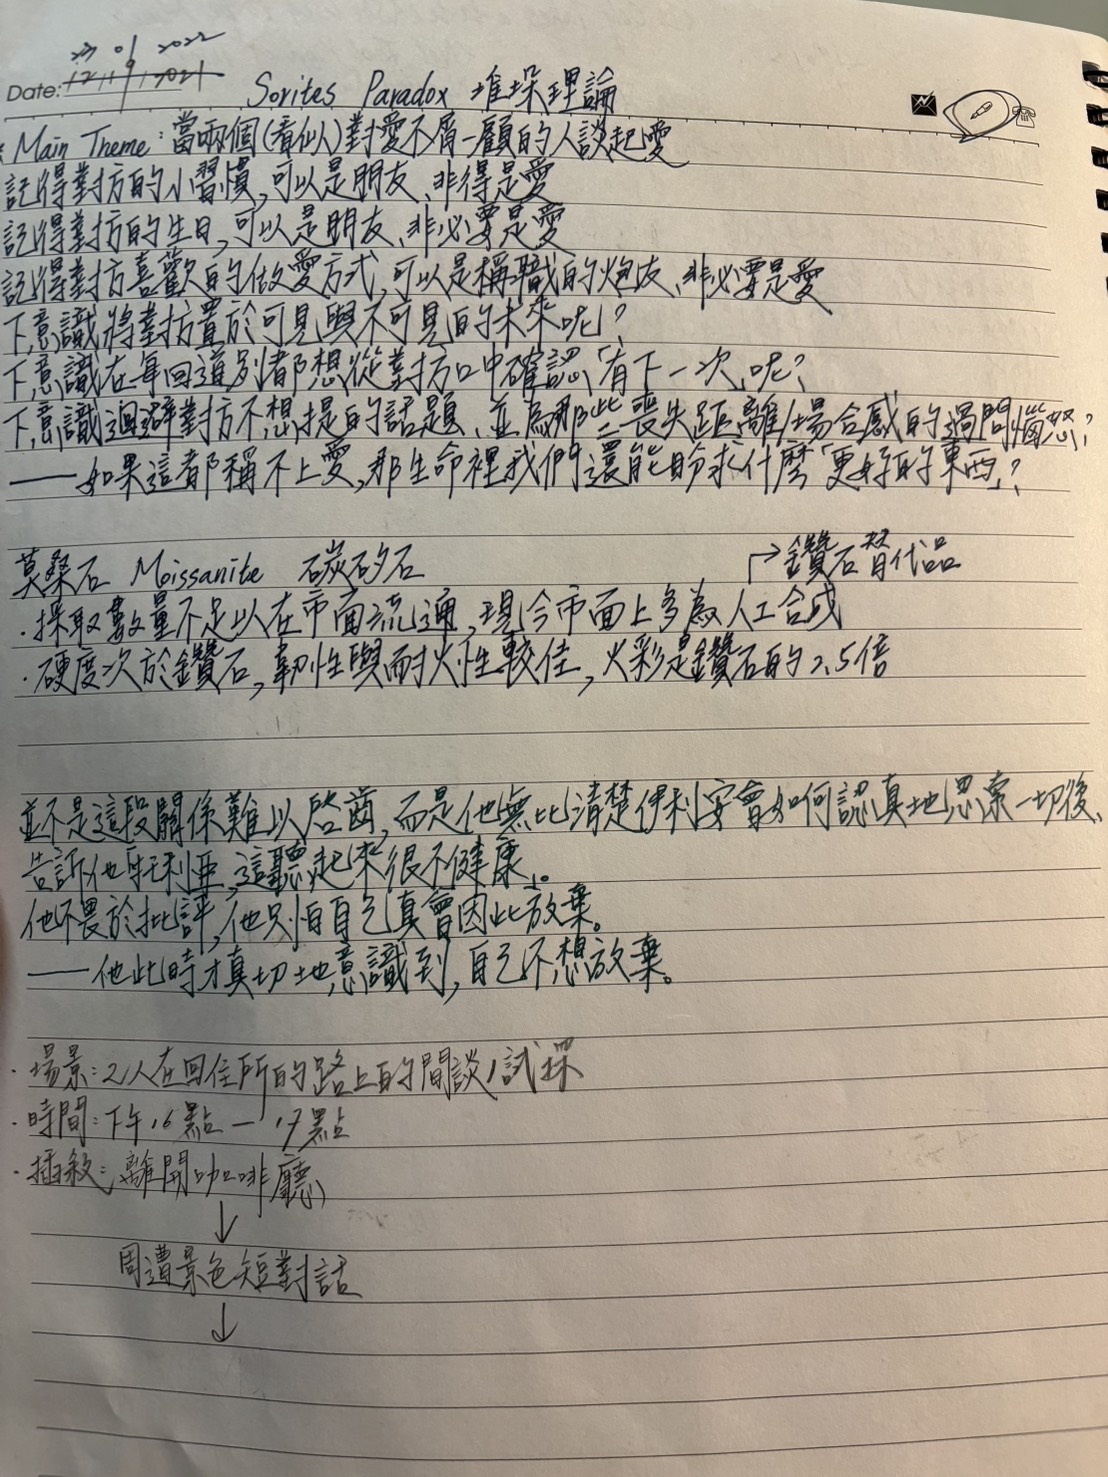 27 01 2022
Date: 12/19/2021
Sorites Paradox 堆垛理論
Main Theme: 當兩個(看似)對愛不屑一顧的人談起愛
記得對方的小習慣,可以是朋友、非得是愛
記得對方的生日,可以是朋友、非必要是愛
記得對方喜歡的做愛方式,可以是稱職的炮友、非必要是愛
下意識將對方置於可見與不可見的未來呢?
下意識在每回道別都想從對方口中確認「有下一次」呢?
下意識迴避對方不想提的話題、並為那些喪失距離/場合感的過問惱怒?
——如果這都稱不上愛,那生命裡我們還能盼求什麼「更好的東西」?
莫桑石 Moissanite 碳矽石
→鑽石替代品
·採取數量不足以在市面流通,現今市面上多為人工合成
·硬度次於鑽石,韌性與耐火性較佳,火彩是鑽石的2.5倍
並不是這段關係難以啓齒,而是他無比清楚伊利安會如何認真地思索一切後、
告訴他「托利亞,這聽起來很不健康」。
他不畏於批評,他只怕自己真會因此放棄。
——他此時才真切地意識到,自己不想放棄。
·場景:2人在回住所的路上的閒談/試探
·時間:下午16點—17點
·插敘:離開咖啡廳
↓
周遭景色短對話
↓